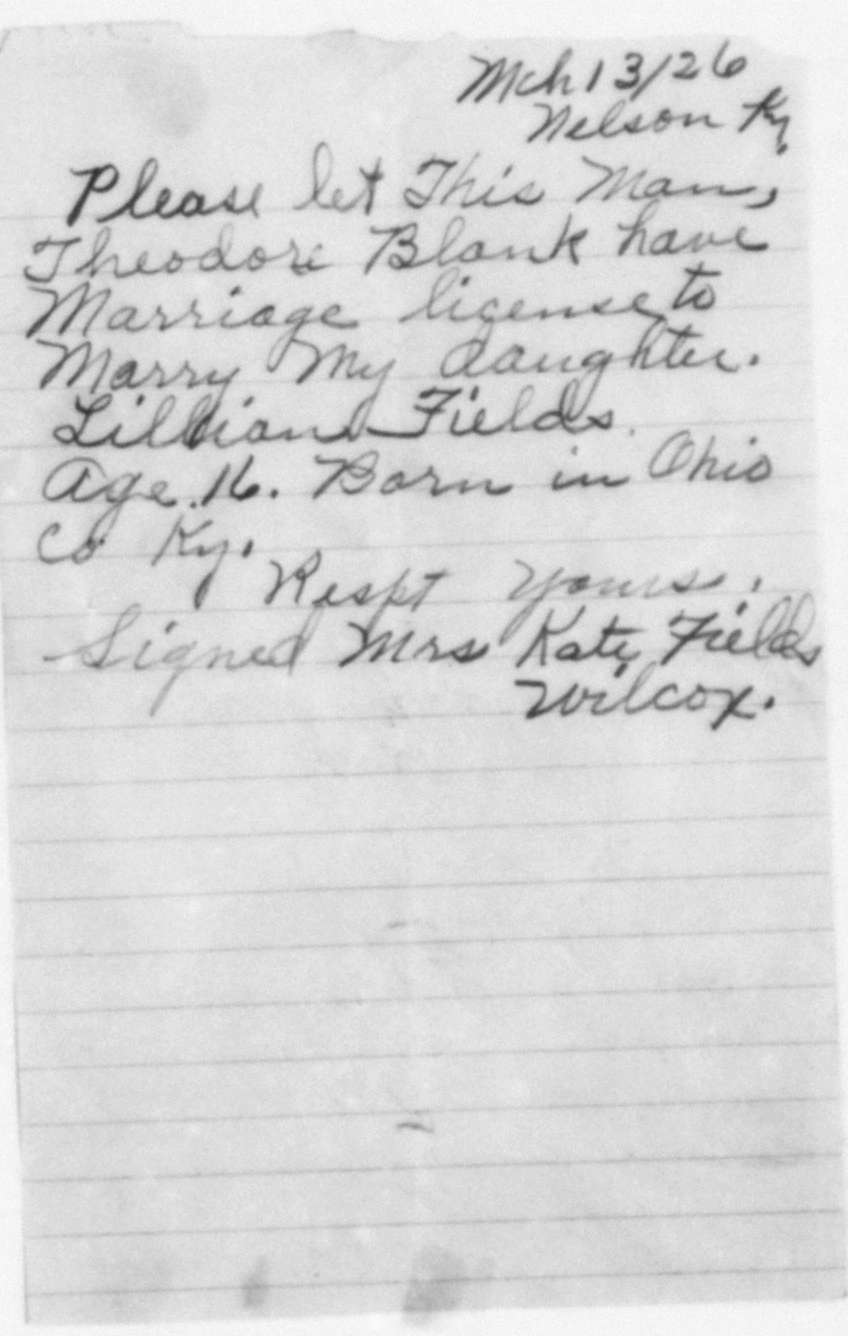 Mch 13/26
Nelson Ky.
Please let This Man,
Theodore Blank have
Marriage license to
Marry My daughter.
Lillian Fields.
Age.16. Born in Ohio
Co Ky.
Respt yours.
Signed Mrs Kate Fields
Wilcox.